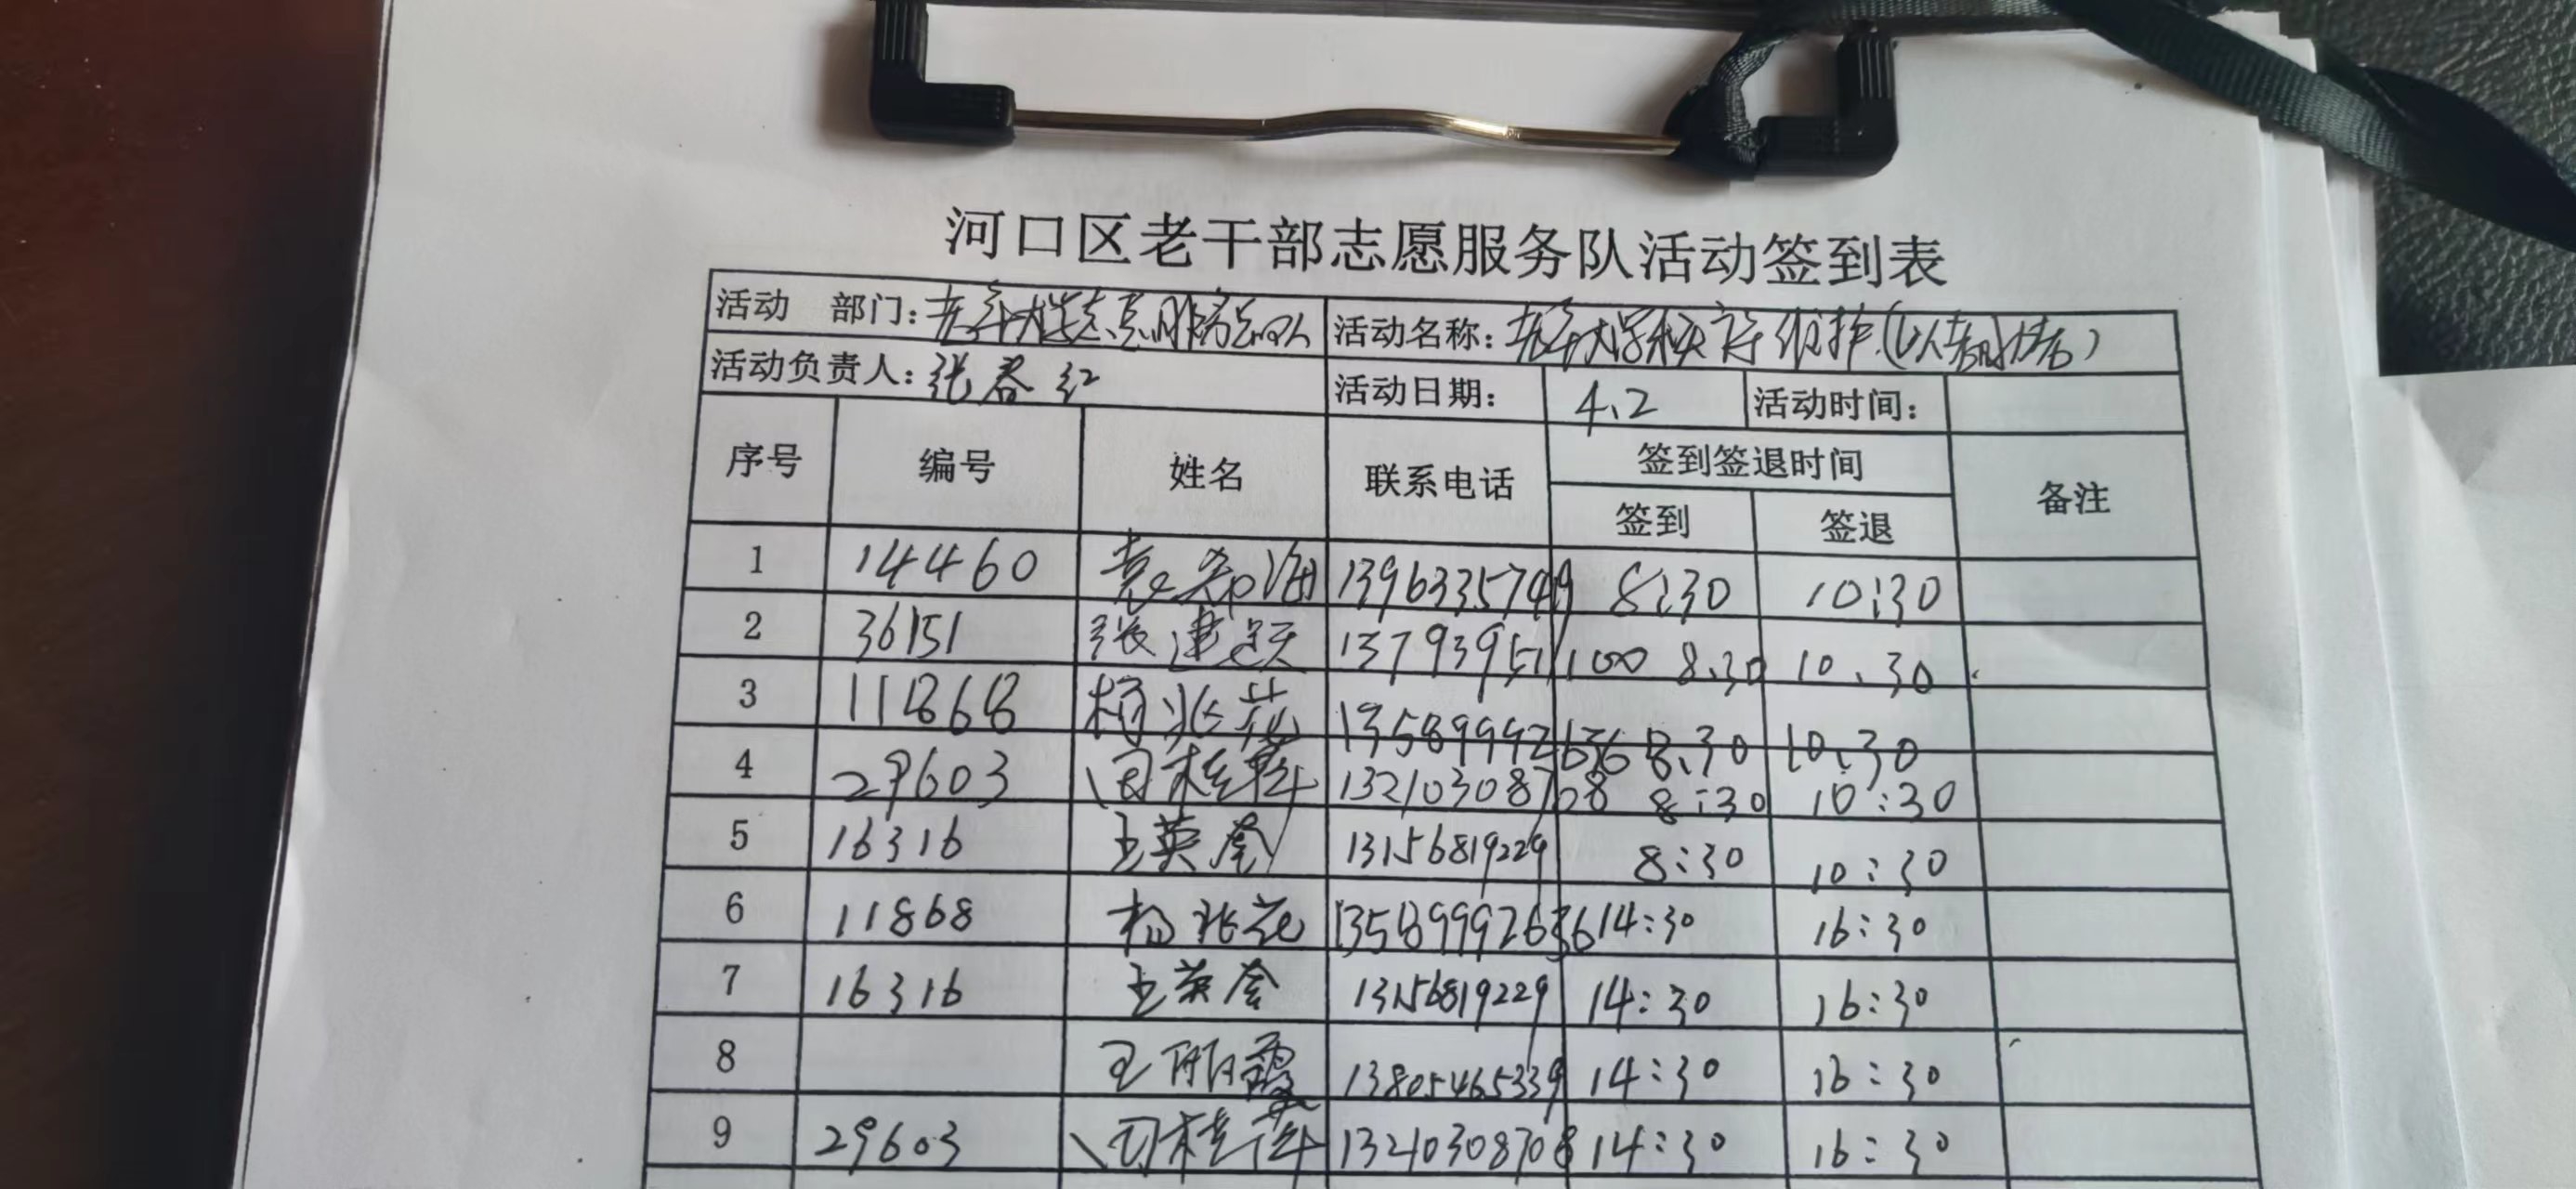 河口区老干部志愿服务队活动签到表
活动 部门：老年大学志愿服务总队 活动名称：老年大学秩序维护
活动负责人：张春红 活动日期：4.2 活动时间：
序号 编号 姓名 联系电话 签到签退时间 备注
签到 签退
1 14460 13963357449 8:30 10:30
2 36151 张建跃 13793951100 8.30 10.30
3 11868 杨兆花 13589992636 8.30 10.30
4 29603 13210308708 8:30 10:30
5 16316 王英奎 13156819229 8:30 10:30
6 11868 杨兆花 13589992636 14:30 16:30
7 16316 王英奎 13156819229 14:30 16:30
8 王丽霞 13805465339 14:30 16:30
9 29603 13210308708 14:30 16:30